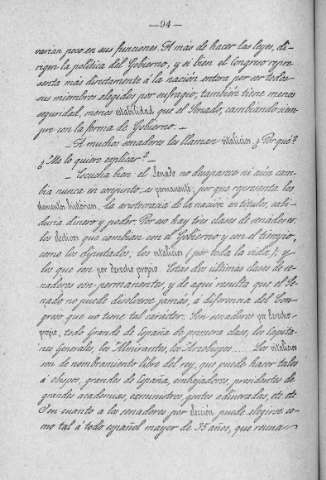 —94—
varían poco en sus funciones. A más de hacer las leyes, di-
rigen la política del Gobierno, y si bien el Congreso repre-
senta más directamente á la nación entera por ser todos
sus miembros elegidos por sufragio, también tiene menos
seguridad, menos estabilidad que el Senado, cambiando siem-
pre con la forma de Gobierno.—
—A muchos senadores les llaman vitalicios, ¿Por qué?
¿Me lo quiere explicar?—
—Escucha bien: el Senado no desaparece ni aún cam-
bia nunca en conjunto, es permanente, por que representa los
elementos históricos, la aristocracia de la nación en títulos, sabi-
duría dinero y poder. Por eso hay tres clases de senadores:
los electivos que cambian con el Gobierno y con el tiempo,
como los diputados, los vitalicios (por toda la vida); y
los que son por derecho propio. Estas dos últimas clases de se-
nadores son permanentes, y de aquí resulta que el Se-
nado no puede disolverse jamás, a diferencia del Con-
greso que no tiene tal carácter. Son senadores por derecho
propio, todo Grande de España de primera clase, los Capita-
nes Generales, los Almirantes, los Arzobispos.... Los vitalicios
son de nombramiento libre del rey, que puede hacer tales
á obispos, grandes de España, embajadores, presidentes de
grandes academias, exministros, gentes adineradas, etc. etc.
En cuanto a los senadores por elección puede elegirse co-
mo tal á todo español mayor de 35 años, que reuna